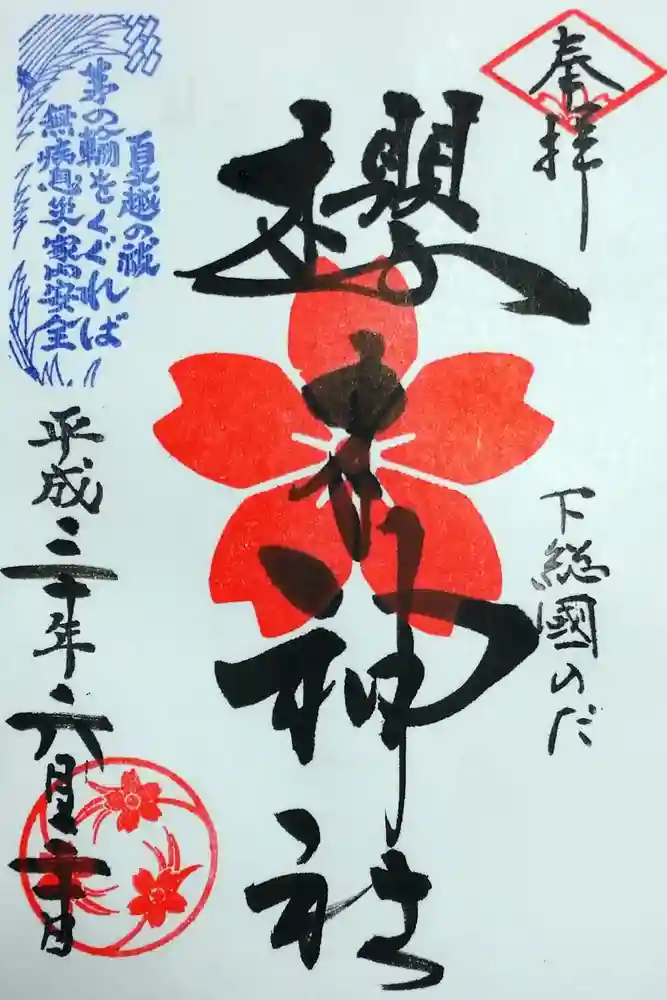 奉拝
下総國のだ
櫻木神社
夏越の祓
茅の輪をくぐれば
無病息災・家内安全
平成三十年六月二十日